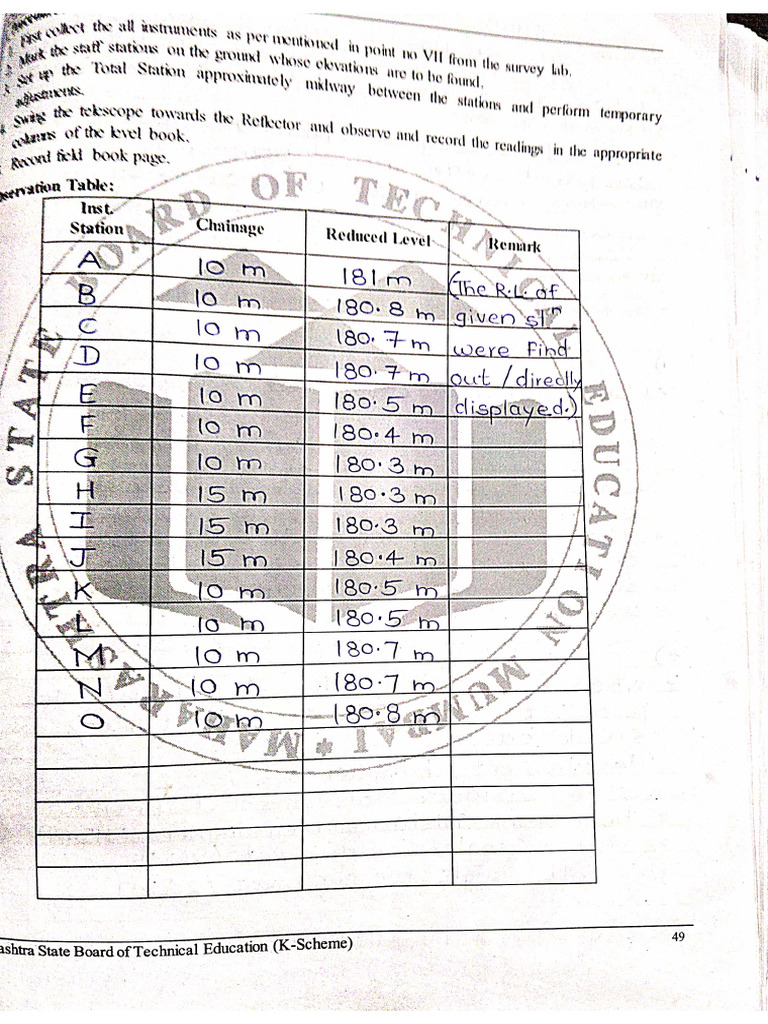 First collect the all instruments as per mentioned in point no VII from the survey lab.
Mark the staff stations on the ground whose elevations are to be found.
Set up the Total Station approximately midway between the stations and perform temporary
adjustments.
Swing the telescope towards the Reflector and observe and record the readings in the appropriate
columns of the level book.
Record field book page.
servation Table:
Inst. Station Chainage Reduced Level Remark
A 10 m 181 m (The R.L. of
B 10 m 180.8 m given stn
C 10 m 180.7 m were find
D 10 m 180.7 m out / direclly
E 10 m 180.5 m displayed.)
F 10 m 180.4 m
G 10 m 180.3 m
H 15 m 180.3 m
I 15 m 180.3 m
J 15 m 180.4 m
K 10 m 180.5 m
L 10 m 180.5 m
M 10 m 180.7 m
N 10 m 180.7 m
O 10 m 180.8 m
MAHARASHTRA STATE BOARD OF TECHNICAL EDUCATION MUMBAI
ashtra State Board of Technical Education (K-Scheme)
49